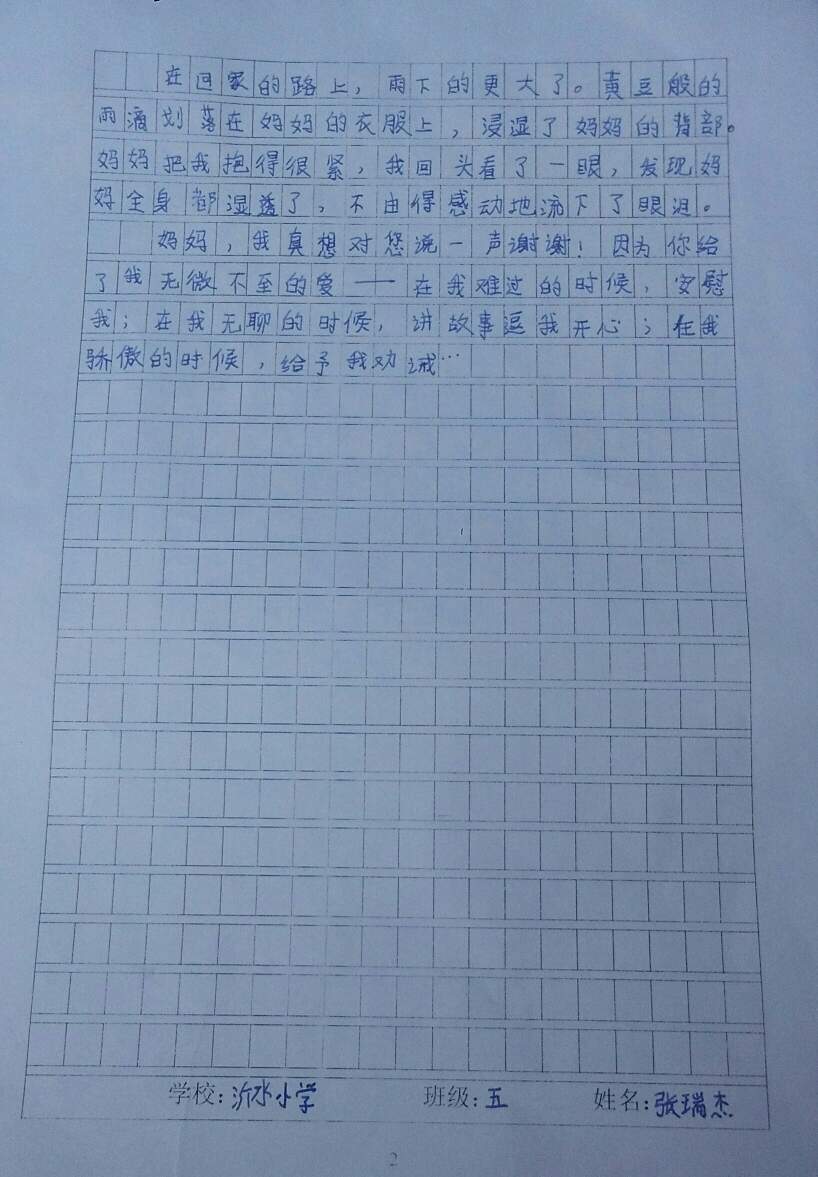 在回家的路上，雨下的更大了。黄豆般的
雨滴划落在妈妈的衣服上，浸湿了妈妈的背部。
妈妈把我抱得很紧，我回头看了一眼，发现妈
妈全身都湿透了，不由得感动地流下了眼泪。
妈妈，我真想对您说一声谢谢！因为你给
了我无微不至的爱——在我难过的时候，安慰
我；在我无聊的时候，讲故事逗我开心；在我
骄傲的时候，给予我劝诫…
学校：沂水小学 班级：五 姓名：张瑞杰
2